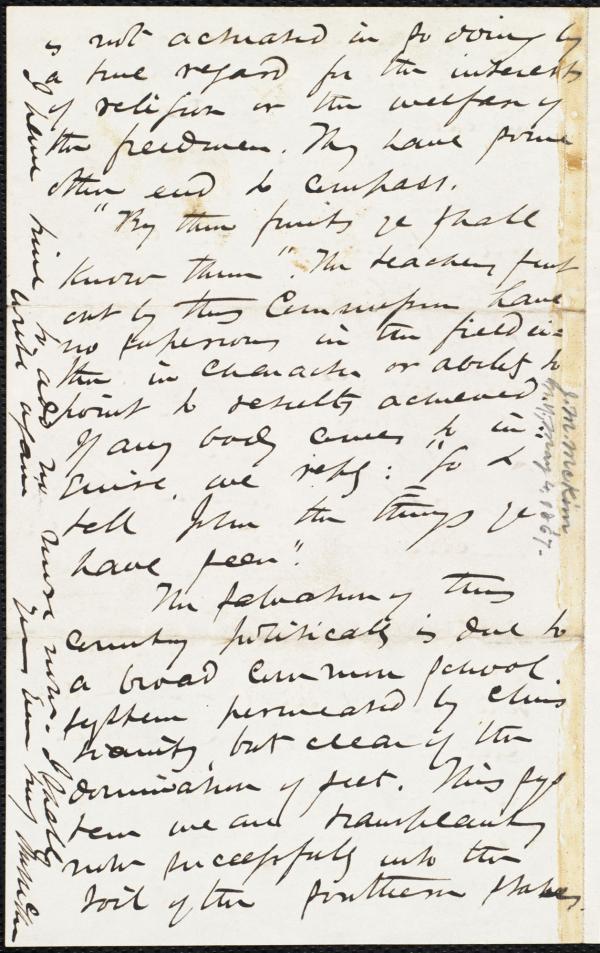 is not actuated in so doing by
a true regard for the interests
of religion or the welfare of
the freedmen. They have some
other end to compass.
"By their fruits ye shall
know them". The teachers sent
out by this Commission have
no superiors in the field ei=
ther in character or ability to
point to results achieved
If any body comes to in"
quire, we reply: "Go &
tell John the things ye
have seen".
The salvation of this
country politically is due to
a broad common school
system permeated by Chris
tianity, but clear of the
domination of sect. This sys
tem we are transplanting
now successfully into the
soil of the southern states.
I have time to add no more now. I shall
write again
Yours ever
J. M. McKim
N.Y. May 4, 1867.